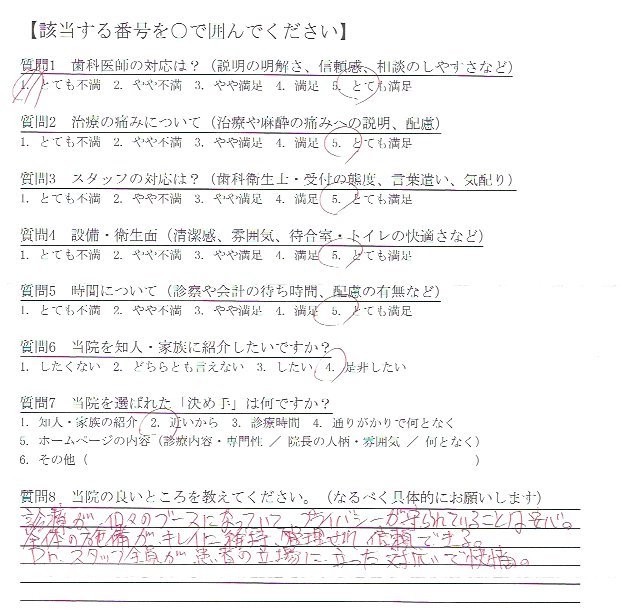 【該当する番号を○で囲んでください】
質問1 歯科医師の対応は？（説明の明解さ、信頼感、相談のしやすさなど）
1. とても不満 2. やや不満 3. やや満足 4. 満足 5. とても満足
質問2 治療の痛みについて（治療や麻酔の痛みへの説明、配慮）
1. とても不満 2. やや不満 3. やや満足 4. 満足 5. とても満足
質問3 スタッフの対応は？（歯科衛生士・受付の態度、言葉遣い、気配り）
1. とても不満 2. やや不満 3. やや満足 4. 満足 5. とても満足
質問4 設備・衛生面（清潔感、雰囲気、待合室・トイレの快適さなど）
1. とても不満 2. やや不満 3. やや満足 4. 満足 5. とても満足
質問5 時間について（診察や会計の待ち時間、配慮の有無など）
1. とても不満 2. やや不満 3. やや満足 4. 満足 5. とても満足
質問6 当院を知人・家族に紹介したいですか？
1. したくない 2. どちらとも言えない 3. したい 4. 是非したい
質問7 当院を選ばれた「決め手」は何ですか？
1. 知人・家族の紹介 2. 近いから 3. 診療時間 4. 通りがかりで何となく
5. ホームページの内容（診療内容・専門性 ／ 院長の人柄・雰囲気 ／ 何となく）
6. その他（ ）
質問8 当院の良いところを教えてください。（なるべく具体的にお願いします）
診療が、個々のブースになっていて、プライバシーが守られていることは安心。
全体の設備がキレイに維持、管理され信頼できる。
Dr. スタッフ全員が患者の立場に立った対応で快適。